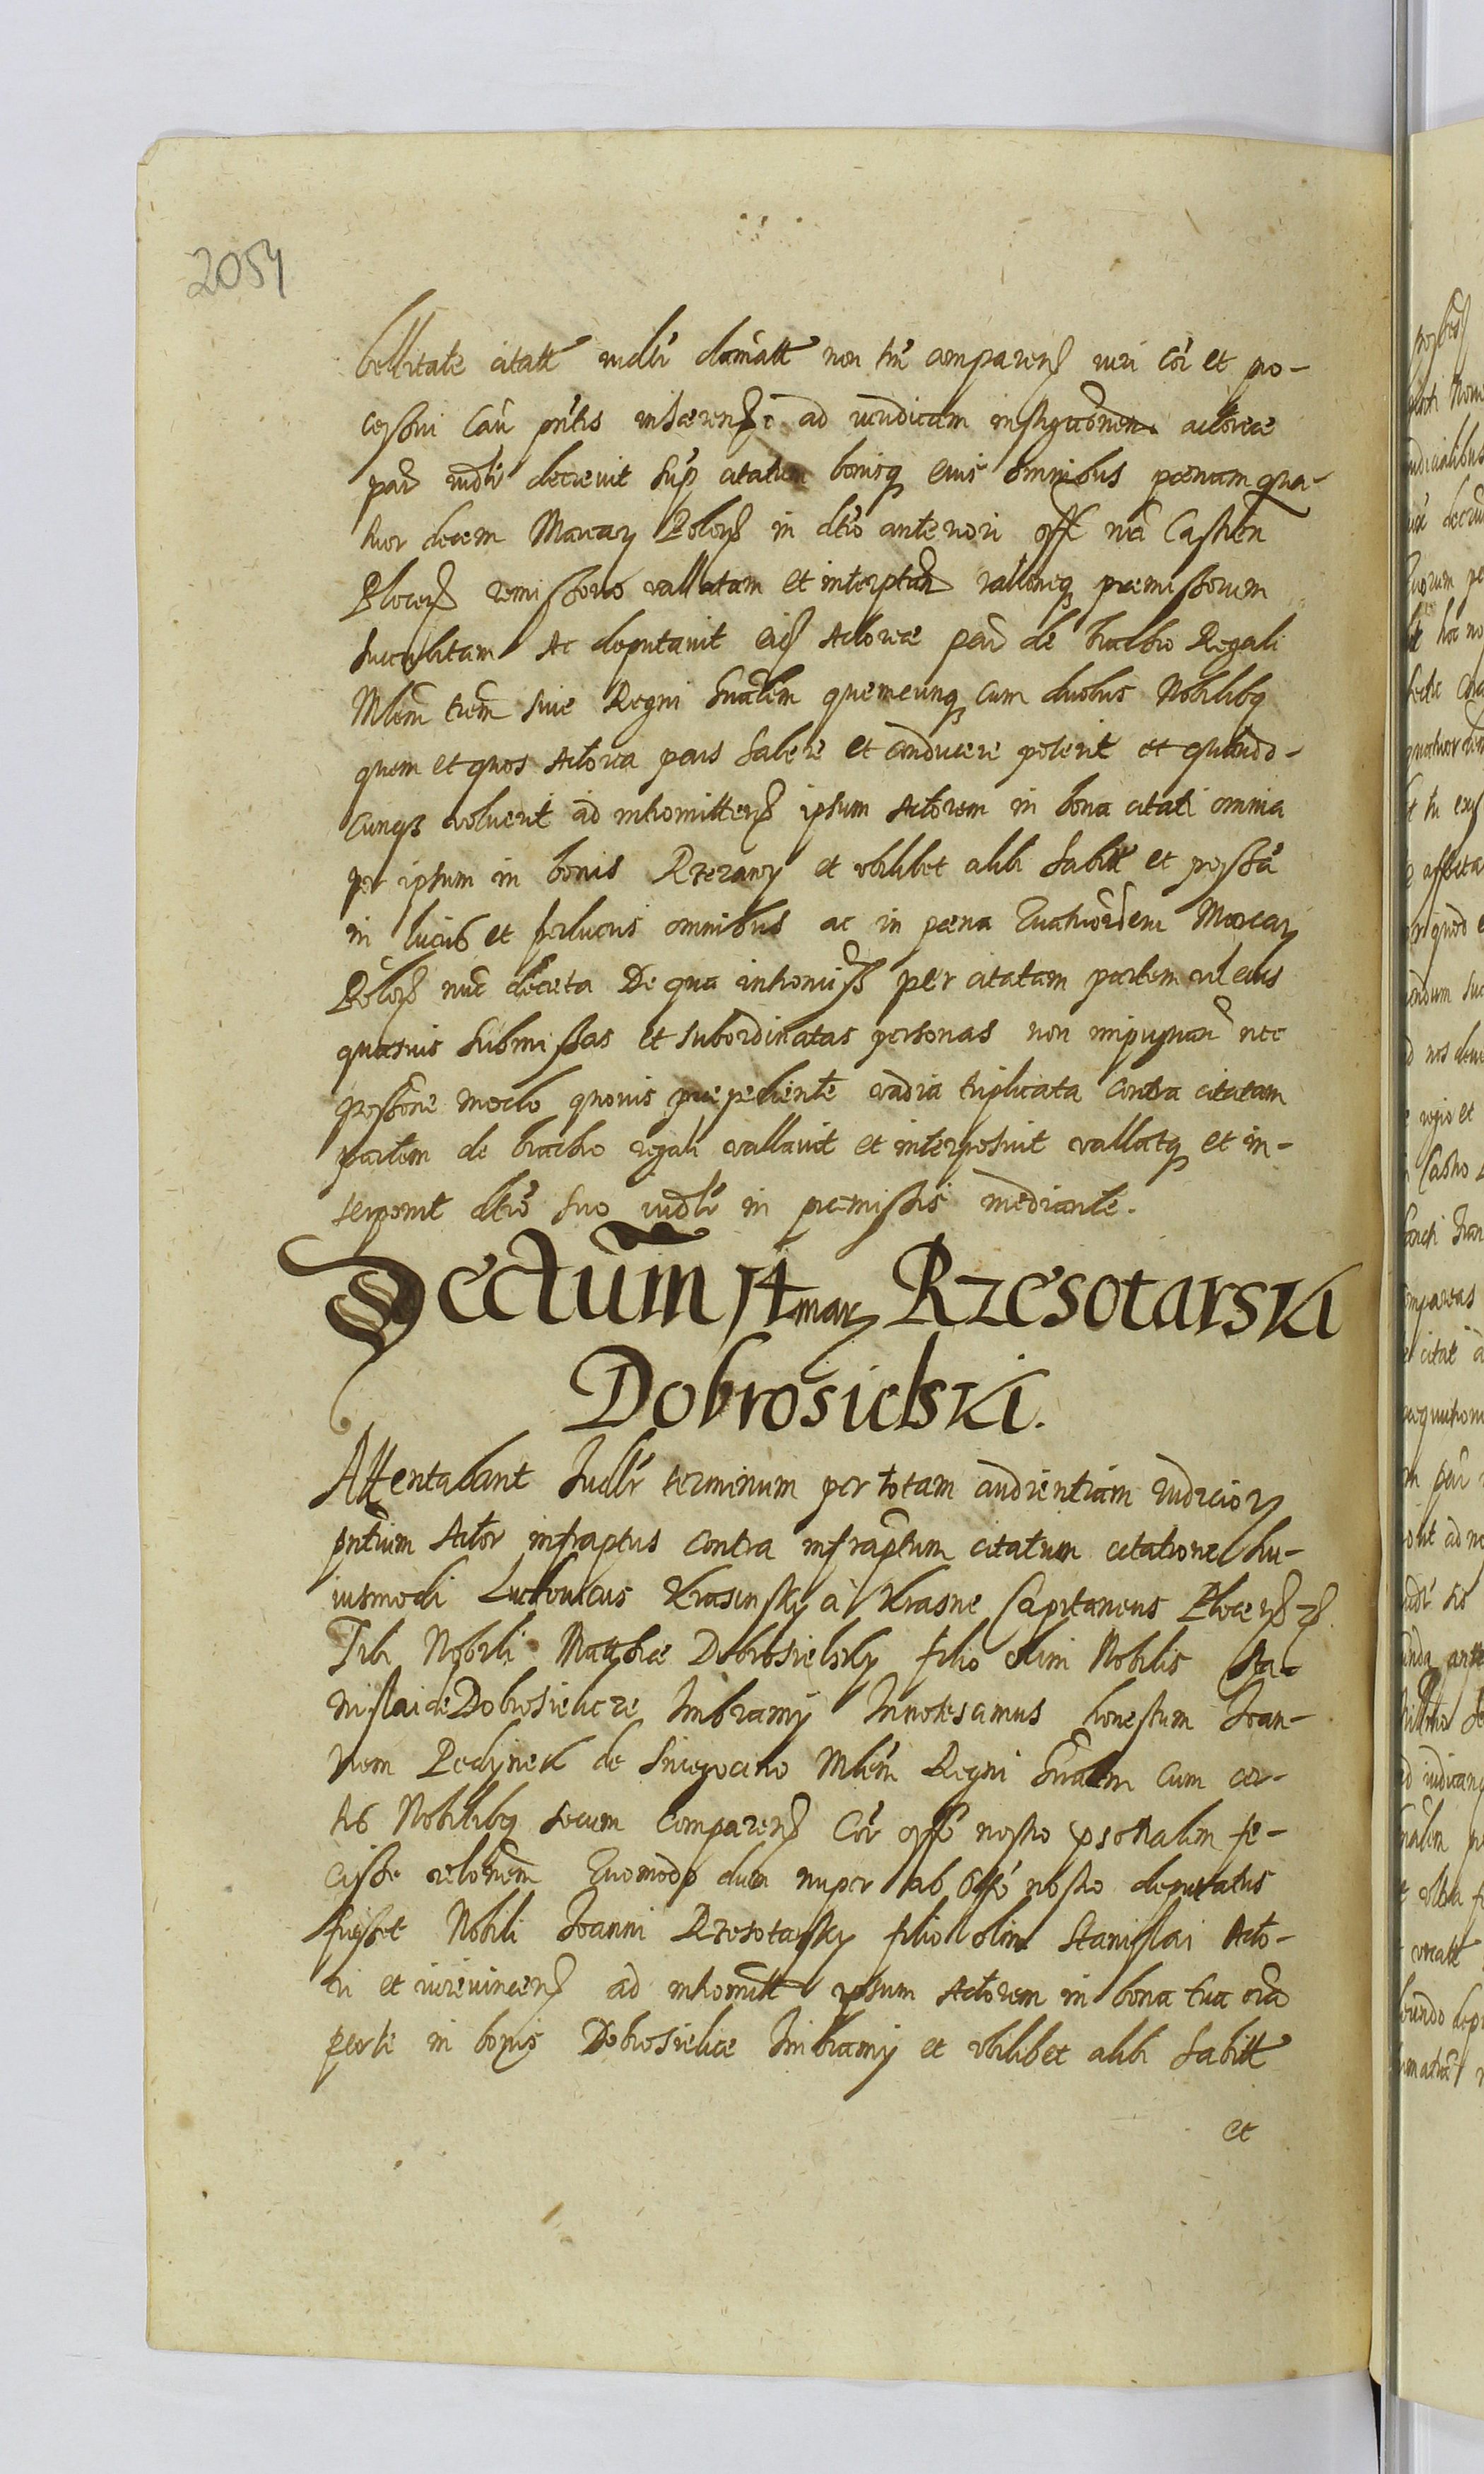 2054
bellitate citatt iudlr clamatt non tn comparens iuri cor et pro-
cessui cau pntis inhaerens ad iuridicam instigationem actoreae
par iudlr decrevit sup citatum bonisq eius omnibus poenam qua-
tuor decem Marcar Polons in dto anteriori offi Castren
Plocens remissorio vallatam et interpitam rationeq praemissorum
succubitam Ac deputavit eid Actoreae par de brachio Regali
Mlem trem sive Regni Gnalem quemcunq cum duobus Nobilibq
quem et quos Actorea pars habere et conducere poterit et quando-
cunq voluerit ad intromittens ipsum Actorem in bona citati omnia
per ipsum in bonis Rzezany et ubilibet alibi habitt et possa
in lucris et perlucris omnibus ac in poena Quatuordecim Marcar
Polons nunc decreta De qua intromiss per citatam partem vel eius
quasvis submissas et subordinatas personas non impugnan nec
gressone modo quovis praepediente vadia triplicata contra citatam
partem de brachio regali vallavit et interposuit vallatq et in-
terponit dto suo iudlr in praemissis mediante.
Dectum 14 mar Rzesotarski
Dobrosielski.
Attentabant Iudlr terminum per totam audientiam Iudicior
pntium Actor infraptus contra infraptum citatum citatione hu-
iusmodi Ludovicus Krasinsky à Krasne Capitaneus Plocens
Tibi Nobili Matthiae Dobrosielsky filio olim Nobilis Sta-
nislai de Dobrosielicze Imbramij Innotescimus honestum Ioan-
nem Pedzinek de Sniegocino Mlem Regni Gnalem cum cer-
tis Nobilibq secum comparens Cor offo nostro psonalim fe-
cisse relonem Quomodo dum nuper ab Offo nostro deputatus
fuisset Nobili Ioanni Rzesotarsky filio olim Stanislai Acto-
ri et iurevincens ad intromitt ipsum Actorem in bona tua oia
per te in bonis Dobrosielice Imbramij et ubilibet alibi habitt
et